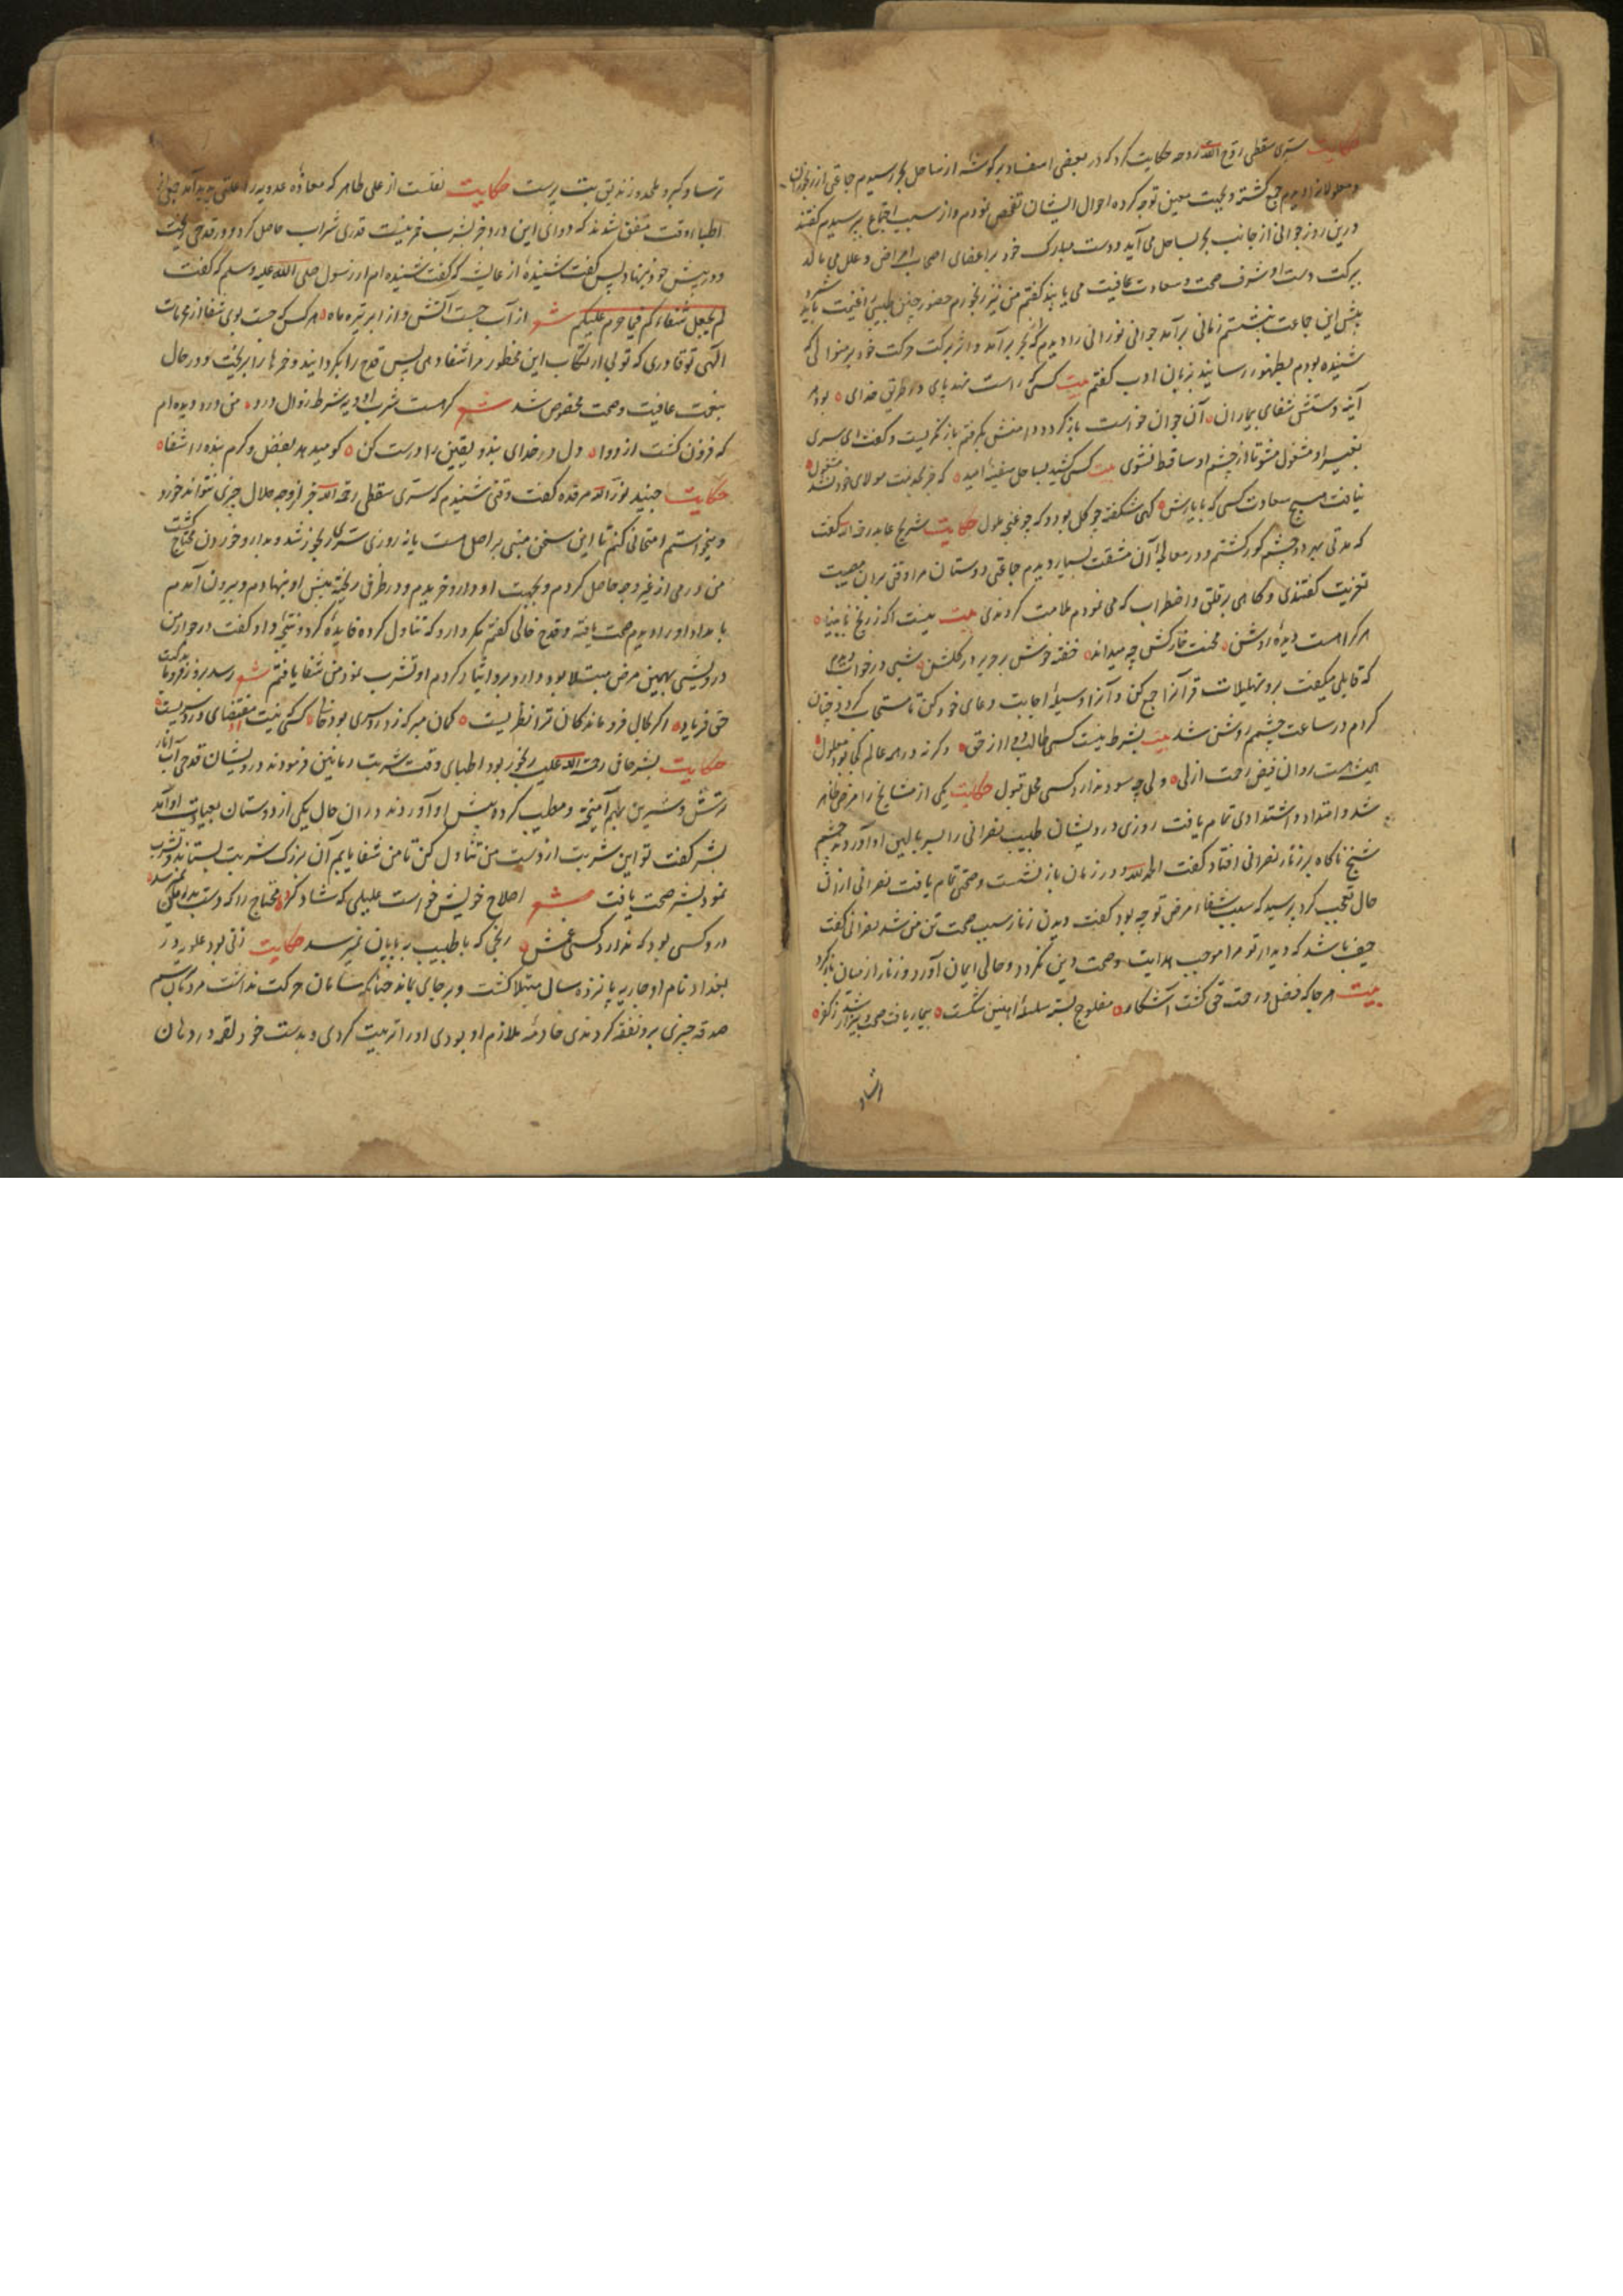 حکایت سری سقطی روح الله روحه حکایت کرد که در بعضی اسفار بر گوشهٔ از ساحل بحر رسیدم جماعتی از رنجوران
و معلولان را دیدم جمع گشته و بجهت معین توجه کرده احوال ایشان تفحص نمودم و از سبب اجتماع پرسیدم گفتند
درین روز جوانی از جانب بحر بساحل می آید و دست مبارک خود بر اعضای اصحاب امراض و علل می مالد
ببرکت دست او شرف صحت و سعادت عافیت می یابند گفتم من نیز رنجورم حضور چنین طبیبی را غنیمت باید شمرد
پیش این جماعت بنشستم زمانی برآمد جوانی نورانی را دیدم که از بحر برآمد و اثر برکت حرکت خود بر منوالی که
شنیده بودم بظهور رسانید بزبان ادب گفتم بیت کسی که راست نهد پای در طریق خدای بود هر
آینه دستش شفای بیماران آن جوان خواست باز گردد دامنش بگرفتم باز نگریست و گفت ای سری
بغیر او مشغول مشو تا از چشم او ساقط نشوی بیت کسی کشید بساحل سفینهٔ امید که جز بخدمت مولای خود نشد مشغول
نیافت هیچ سعادت کسی که با یارش گهی شکفته چو گل بود و گه چو غنچه ملول حکایت شریح عابد رحمه الله گفت
که مدتی بهر دو چشم کور گشتم و در معالجهٔ آن مشقت بسیار دیدم جماعتی دوستان مرا وقتی بران مصیبت
تعزیت گفتندی و گاهی بر قلق و اضطراب که می نمودم ملامت کردندی بیت نیست آگه ز رنج نابینا
هر کرا هست دیدهٔ روشن محنت خارکش چه میداند خفته خوش بر حریر در گلشن شبی در خواب دیدم
که قایلی میگفت برو تهلیلات قرآن را جمع کن و آنرا وسیلهٔ اجابت دعای خود کن تا مستجاب گردد چنان
کردم در ساعت چشمم روشن شد بیت بشرط نیست کسی طالب دوا از حق و گرنه در همه عالم کجا بود معلول
همیشه هست روان فیض رحمت ازلی ولی چه سود ندارد کسی محل قبول حکایت یکی از مشایخ را مرضی ظاهر
شد و امتداد و اشتدادی تمام یافت روزی درویشان طبیب نصرانی را بسر بالین او آوردند چشم
شیخ ناگاه بر زنار نصرانی افتاد گفت الحمد لله و در زمان باز نشست و صحتی تمام یافت نصرانی از آن
حال تعجب کرد پرسید که سبب شفاء مرض تو چه بود گفت دیدن زنار سبب صحت تن من شد نصرانی گفت
حیف باشد که دیدار تو مرا موجب هدایت و صحت دین نگردد و حالی ایمان آورد و زنار از میان باز کرد
بیت هر جا که فضل و رحمت حق گشت آشکار مفلوج بسته سلسلهٔ آهنین شکست بیمار یافت صحت و بیزار شد ز کفر
ترسا و گبر و ملحد و زندیق بت پرست حکایت نقلست از علی طاهر که معاذهٔ عدویه را علتی پدید آمد جملهٔ
اطباء وقت متفق شدند که دوای این درد جز بشرب خمر نیست قدری شراب حاصل کرد و در قدحی ریخت
و در پیش خود بنهاد پس گفت شنیدهٔ از عایشه که گفت شنیده ام از رسول صلی الله علیه و سلم که گفت
لم یجعل شفاءکم فیما حرم علیکم شعر از آب جست آتش و از ابر تیره ماه هر کس که جست بوی شفا از محرمات
الهی تو قادری که تو بی ارتکاب این محظور مرا شفا دهی پس قدح را بگردانید و خمرها را بریخت و در حال
بنعمت عافیت و صحت مخصوص شد شعر گر هست شرب ادویه شرط زوال درد من درد دیده ام
که فزون گشت از دوا دل در خدای بند و یقین را درست کن کو میدهد بفضل و کرم بنده را شفا
حکایت جنید نور الله مرقده گفت وقتی شنیدم که سری سقطی رحمه الله جز از وجه حلال چیزی نتواند خورد
و میخواستم امتحانی کنم تا این سخن مبنی بر اصل هست یا نه روزی سری رنجور شد و بدارو خوردن محتاج گشت
من درمی از غیر وجه حاصل کردم و بجهت او دارو خریدم و در ظرفی ریخته پیش او بنهادم و بیرون آمدم
بامداد او را دیدم صحت یافته و قدح خالی گفتم مگر دارو که تناول کرده فایدهٔ کرد و نتیجهٔ داد گفت در جوار من
درویشی بهمین مرض مبتلا بود دارو برو ایثار کردم او تشرب نمود من شفا یافتم شعر رسد بروز فروماندگیت
حق فریاد اگر بحال فروماندگان ترا نظریست گمان مبر که ز دردسری بود خالی کسی که نیت مقتضای دردسریست
حکایت بشر حافی رحمة الله علیه رنجور بود اطبای وقت شربت رمانین فرمودند درویشان قدحی آب انار
ترش و شیرین بهم آمیخته و مطیب کرده پیش او آوردند در آن حال یکی از دوستان بعیادت او آمد
بشر گفت تو این شربت از دست من تناول کن تا من شفا یابم آن بزرگ شربت بستاند و تشرب
نمود بشر صحت یافت شعر اصلاح خویش خواست علیلی که شاد کرد محتاج را که دست بدو میرسد
درد کسی بود که ندارد کسی غمش رنجی که با طبیب بپایان نمیرسد حکایت زنی بود علویه در
بغداد نام او جاریه پانزده سال مبتلا گشت و بر جای بماند چنانکه سامان حرکت نداشت مردمان برسم
صدقه چیزی برو نفقه کردندی خادمهٔ ملازم او بودی او را تربیت کردی و بدست خود لقمه در دهان